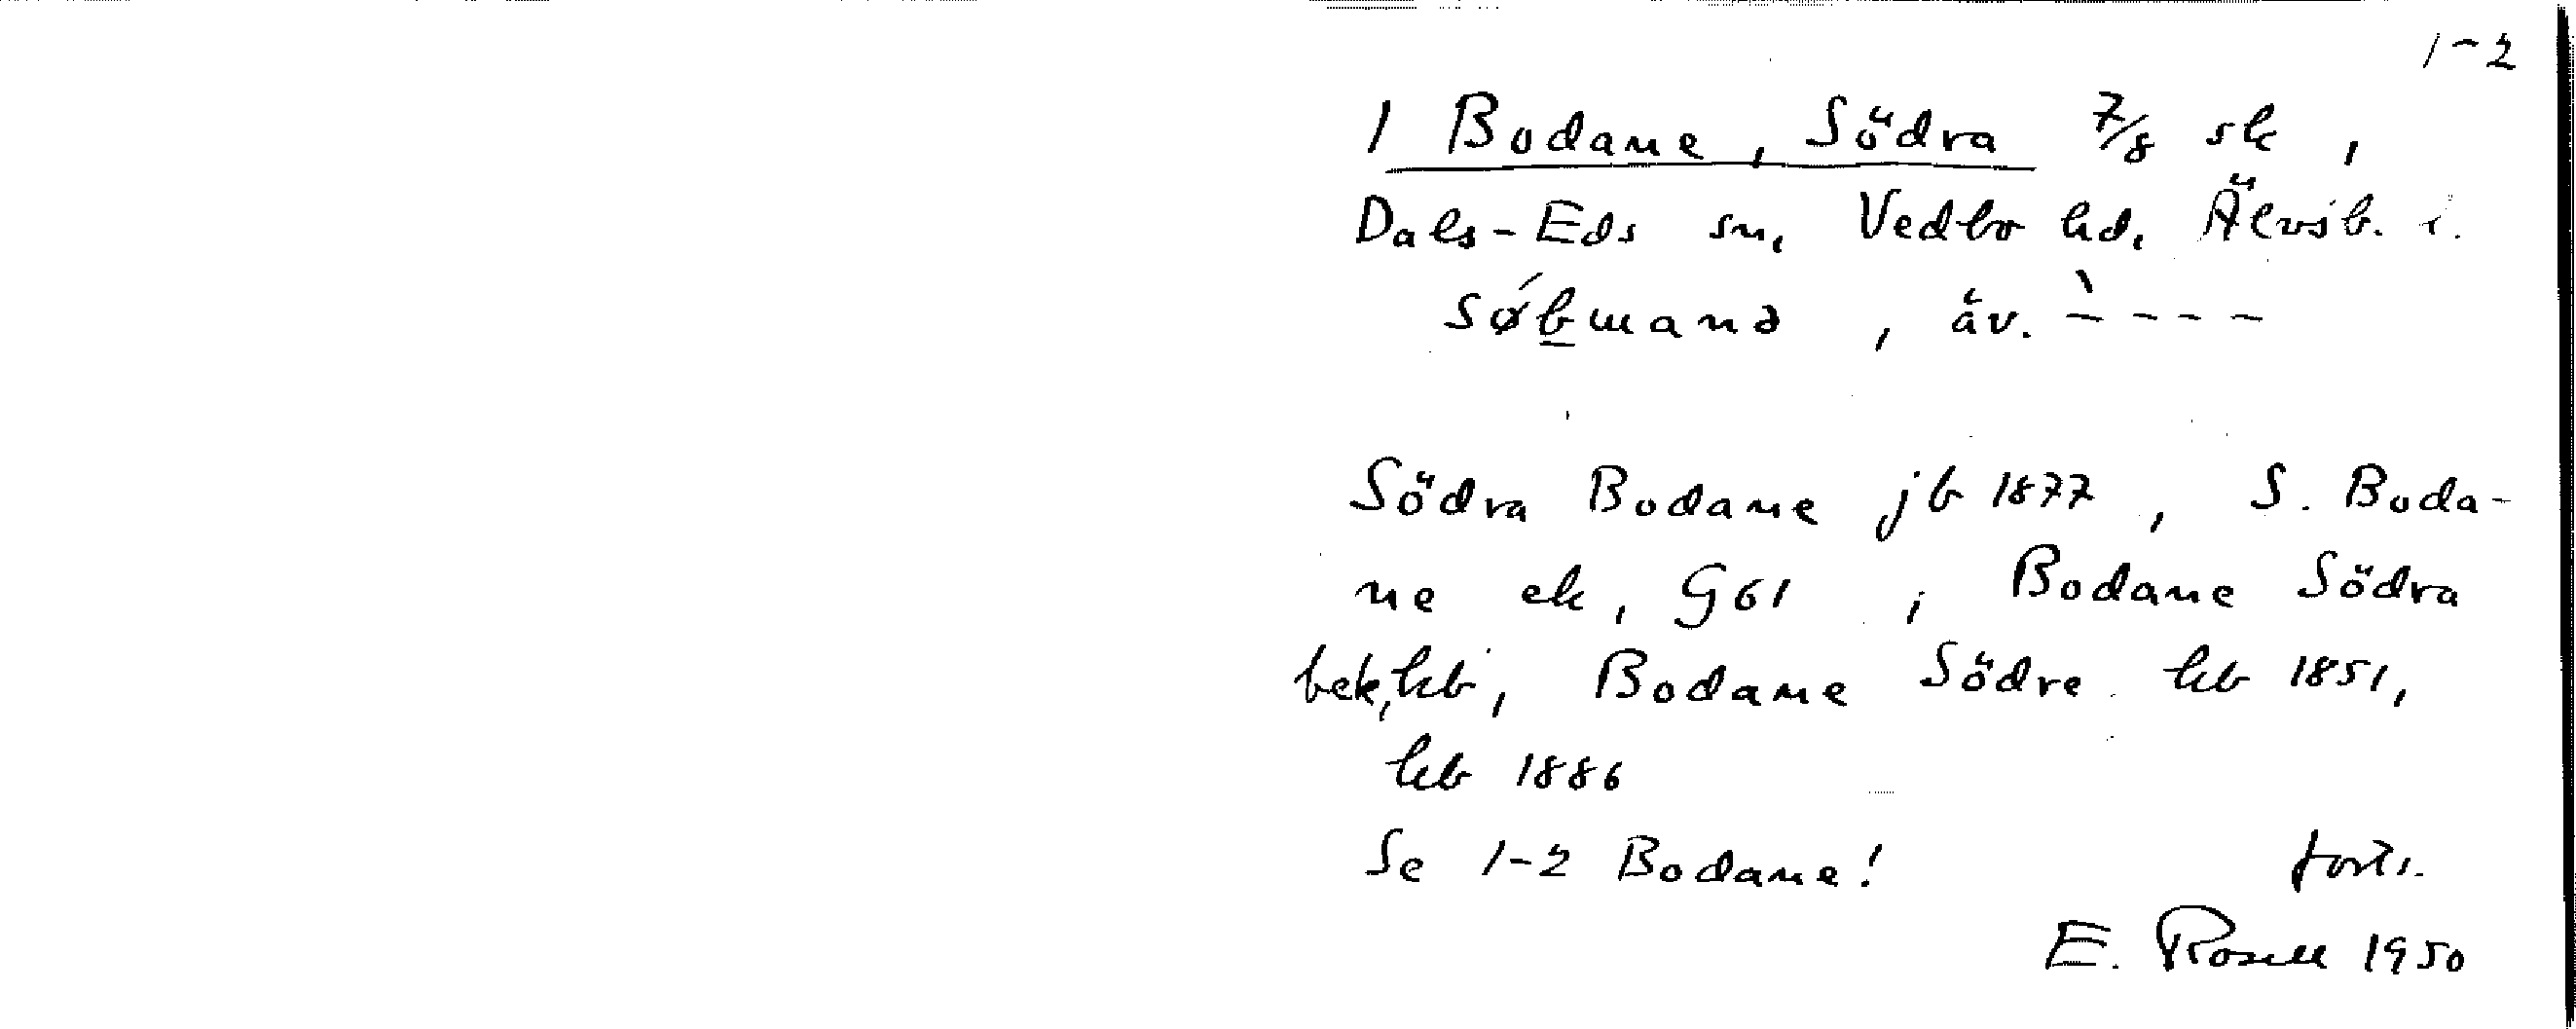 1-2
1 Bodane, Södra 7/8 sk,
Dals-Eds sn, Vedbo hd, Älvsb. l.
, äv. ` - - - -
Södra Bodane jb 1877, S. Boda-
ne ek, G61, Bodane Södra
bek, kb, Bodane Södre kb 1851,
kb 1886
Se 1-2 Bodane! forts.
E. Rosell 1950